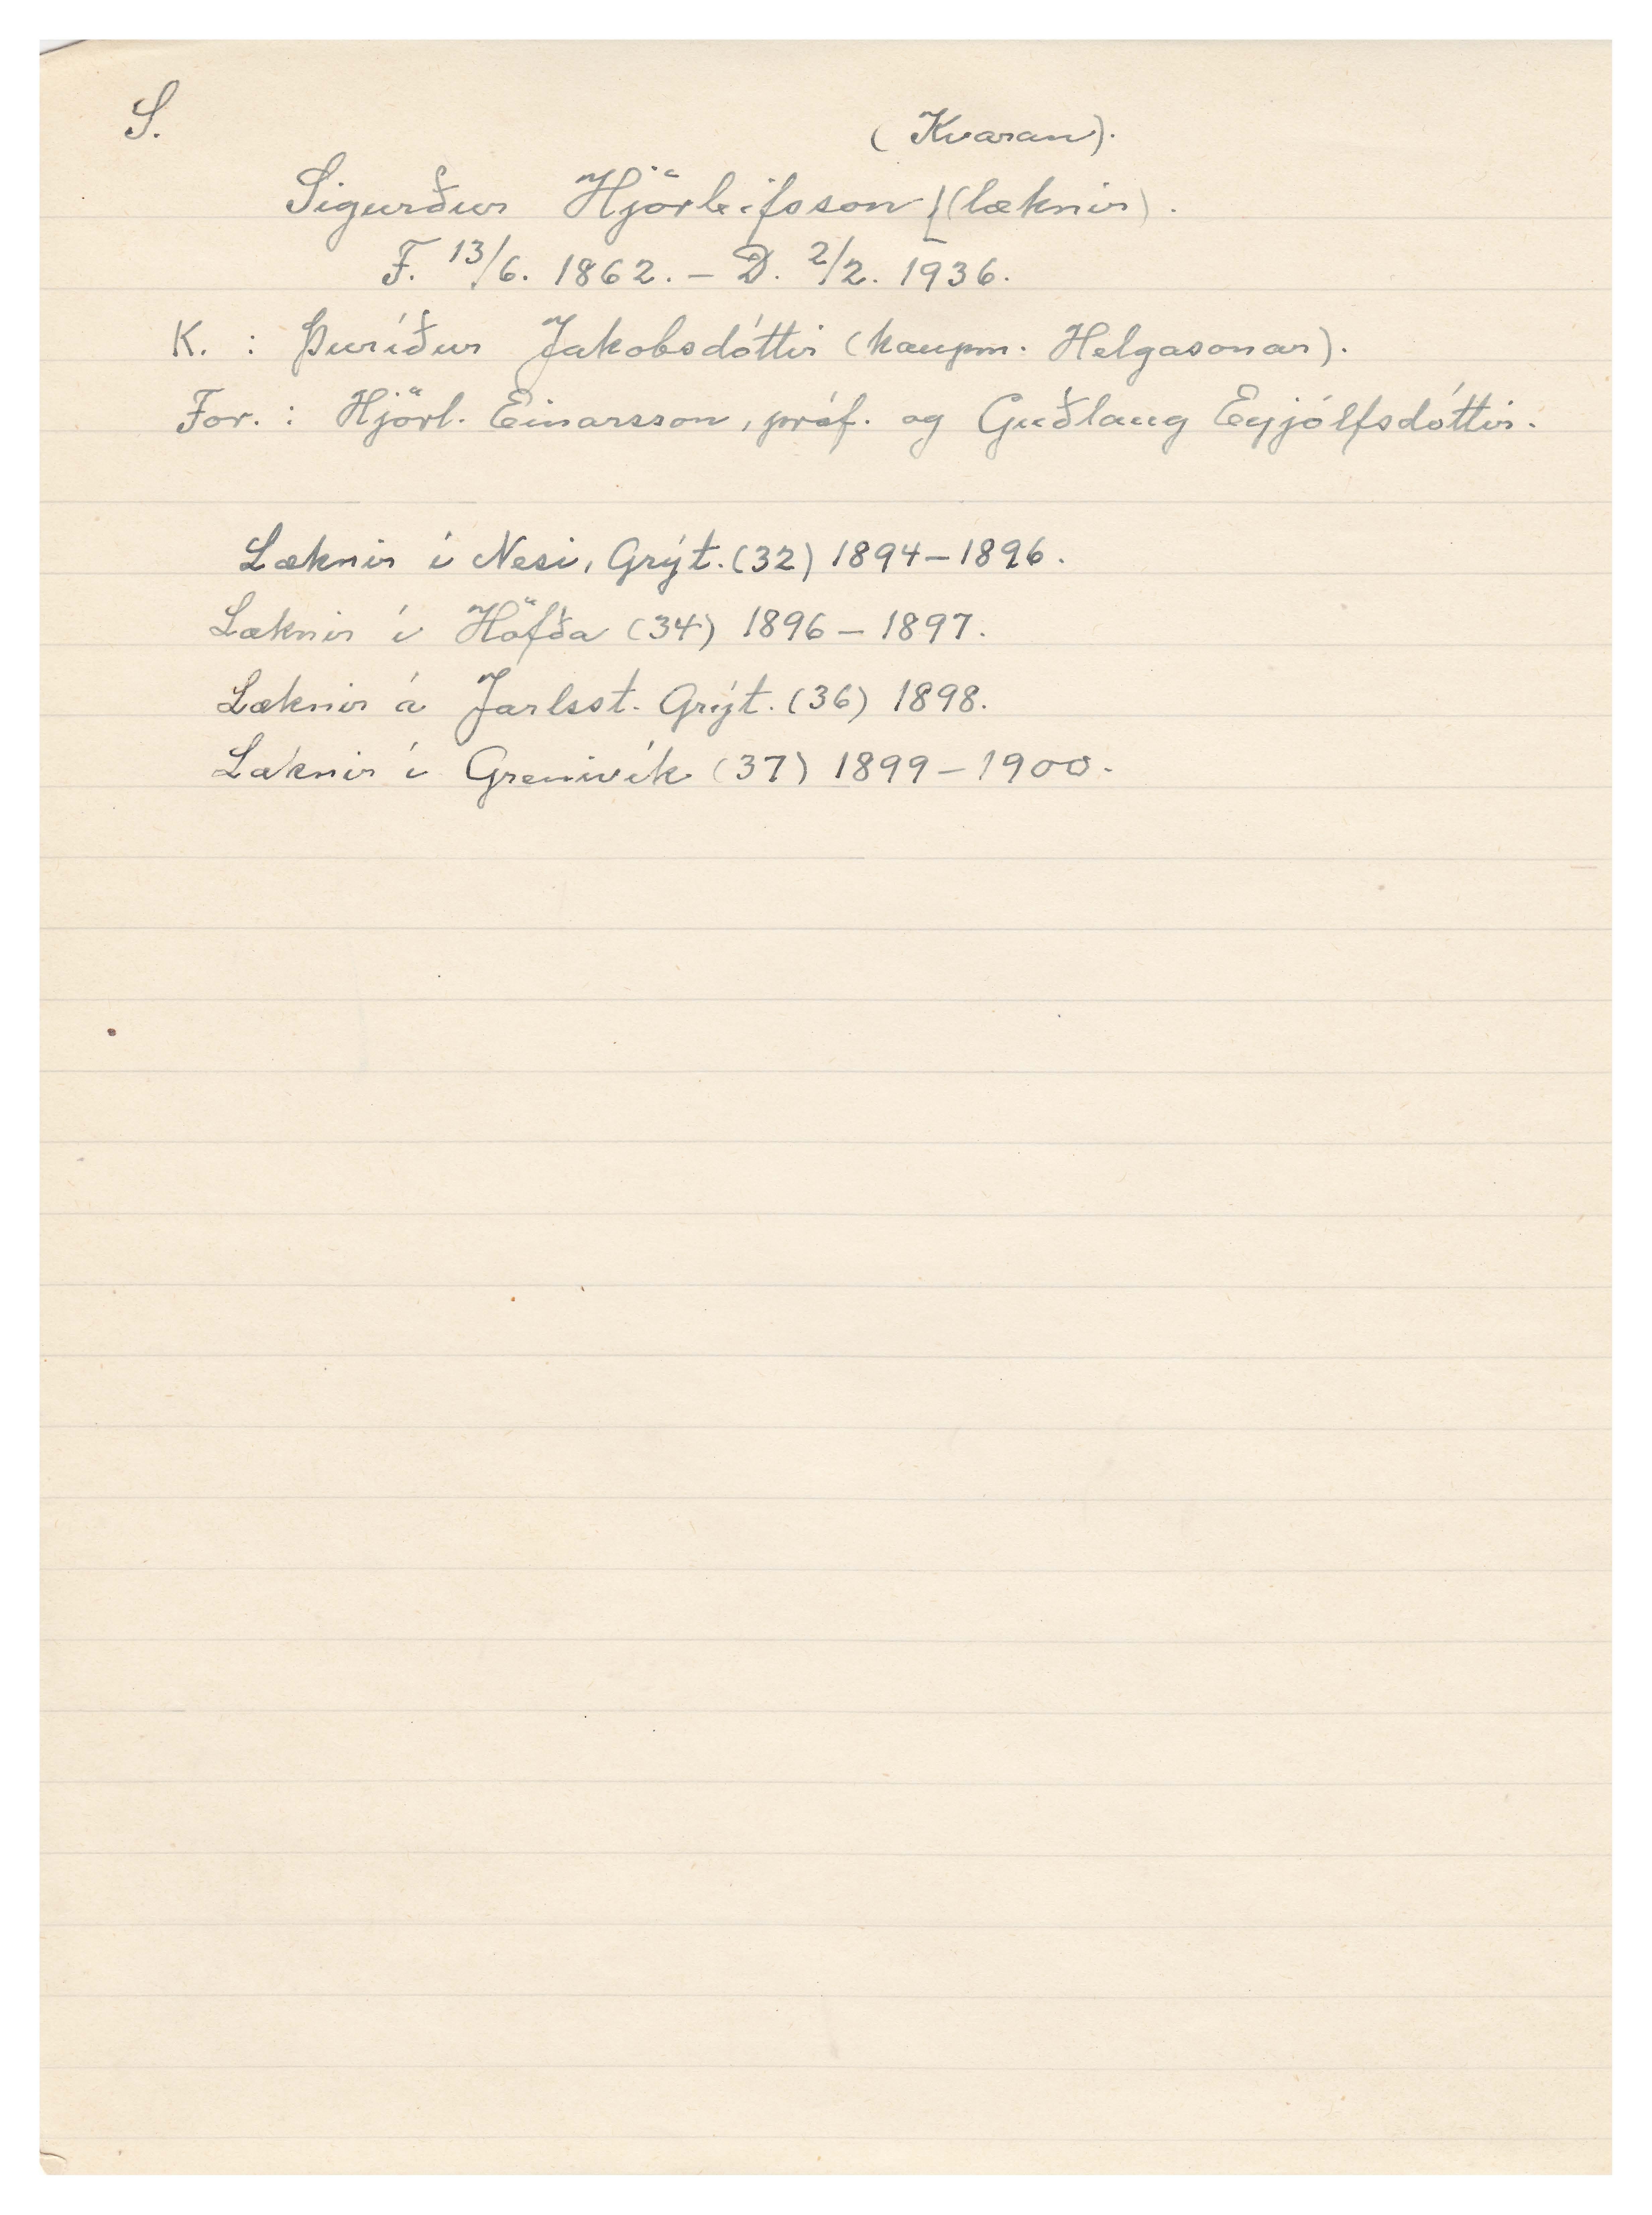 S.
(Kvaran).
Sigurður Hjörleifsson (læknir).
F. 13/6. 1862. – D. 2/2. 1936.
K. : Þuríður Jakobsdóttir (kaupm. Helgasonar).
For. : Hjörl. Einarsson, próf. og Guðlaug Eyjólfsdóttir.
Læknir í Nesi, Grýt. (32) 1894–1896.
Læknir í Höfða (34) 1896 – 1897.
Læknir á Jarlsst. Grýt. (36) 1898.
Læknir í Grenivík (37) 1899 – 1900.